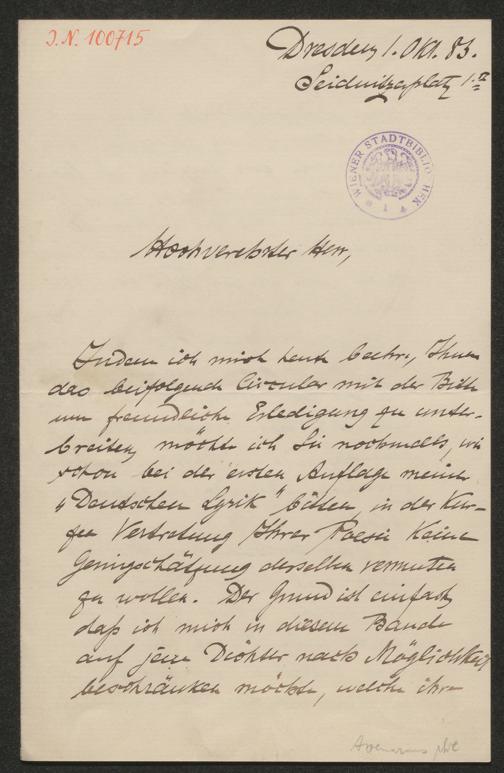 J.N. 100715
Dresden 1. Okt. 83.
Seidnitzerplatz 1.II
WIENER STADTBIBLIOTHEK
Hochverehrter Herr,
Indem ich mich heute beehre, Ihnen
das beifolgende Circular mit der Bitte
um freundliche Erledigung zu unter-
breiten, möchte ich Sie nochmals, wie
schon bei der ersten Auflage meiner
"Deutschen Lyrik" bitten, in der kur-
zen Vertretung Ihrer Poesie keine
Geringschätzung derselben vermuten
zu wollen. Der Grund ist einfach,
daß ich mich in diesem Bande
auf jene Dichter nach Möglichkeit
beschränken möchte, welche ihre
Avenarius